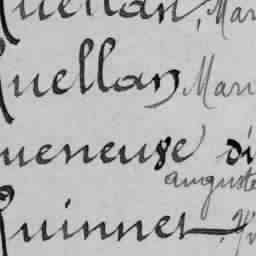 Quellan, Mar
Quellan, Mari
ueneuse di
auguste
Quinner